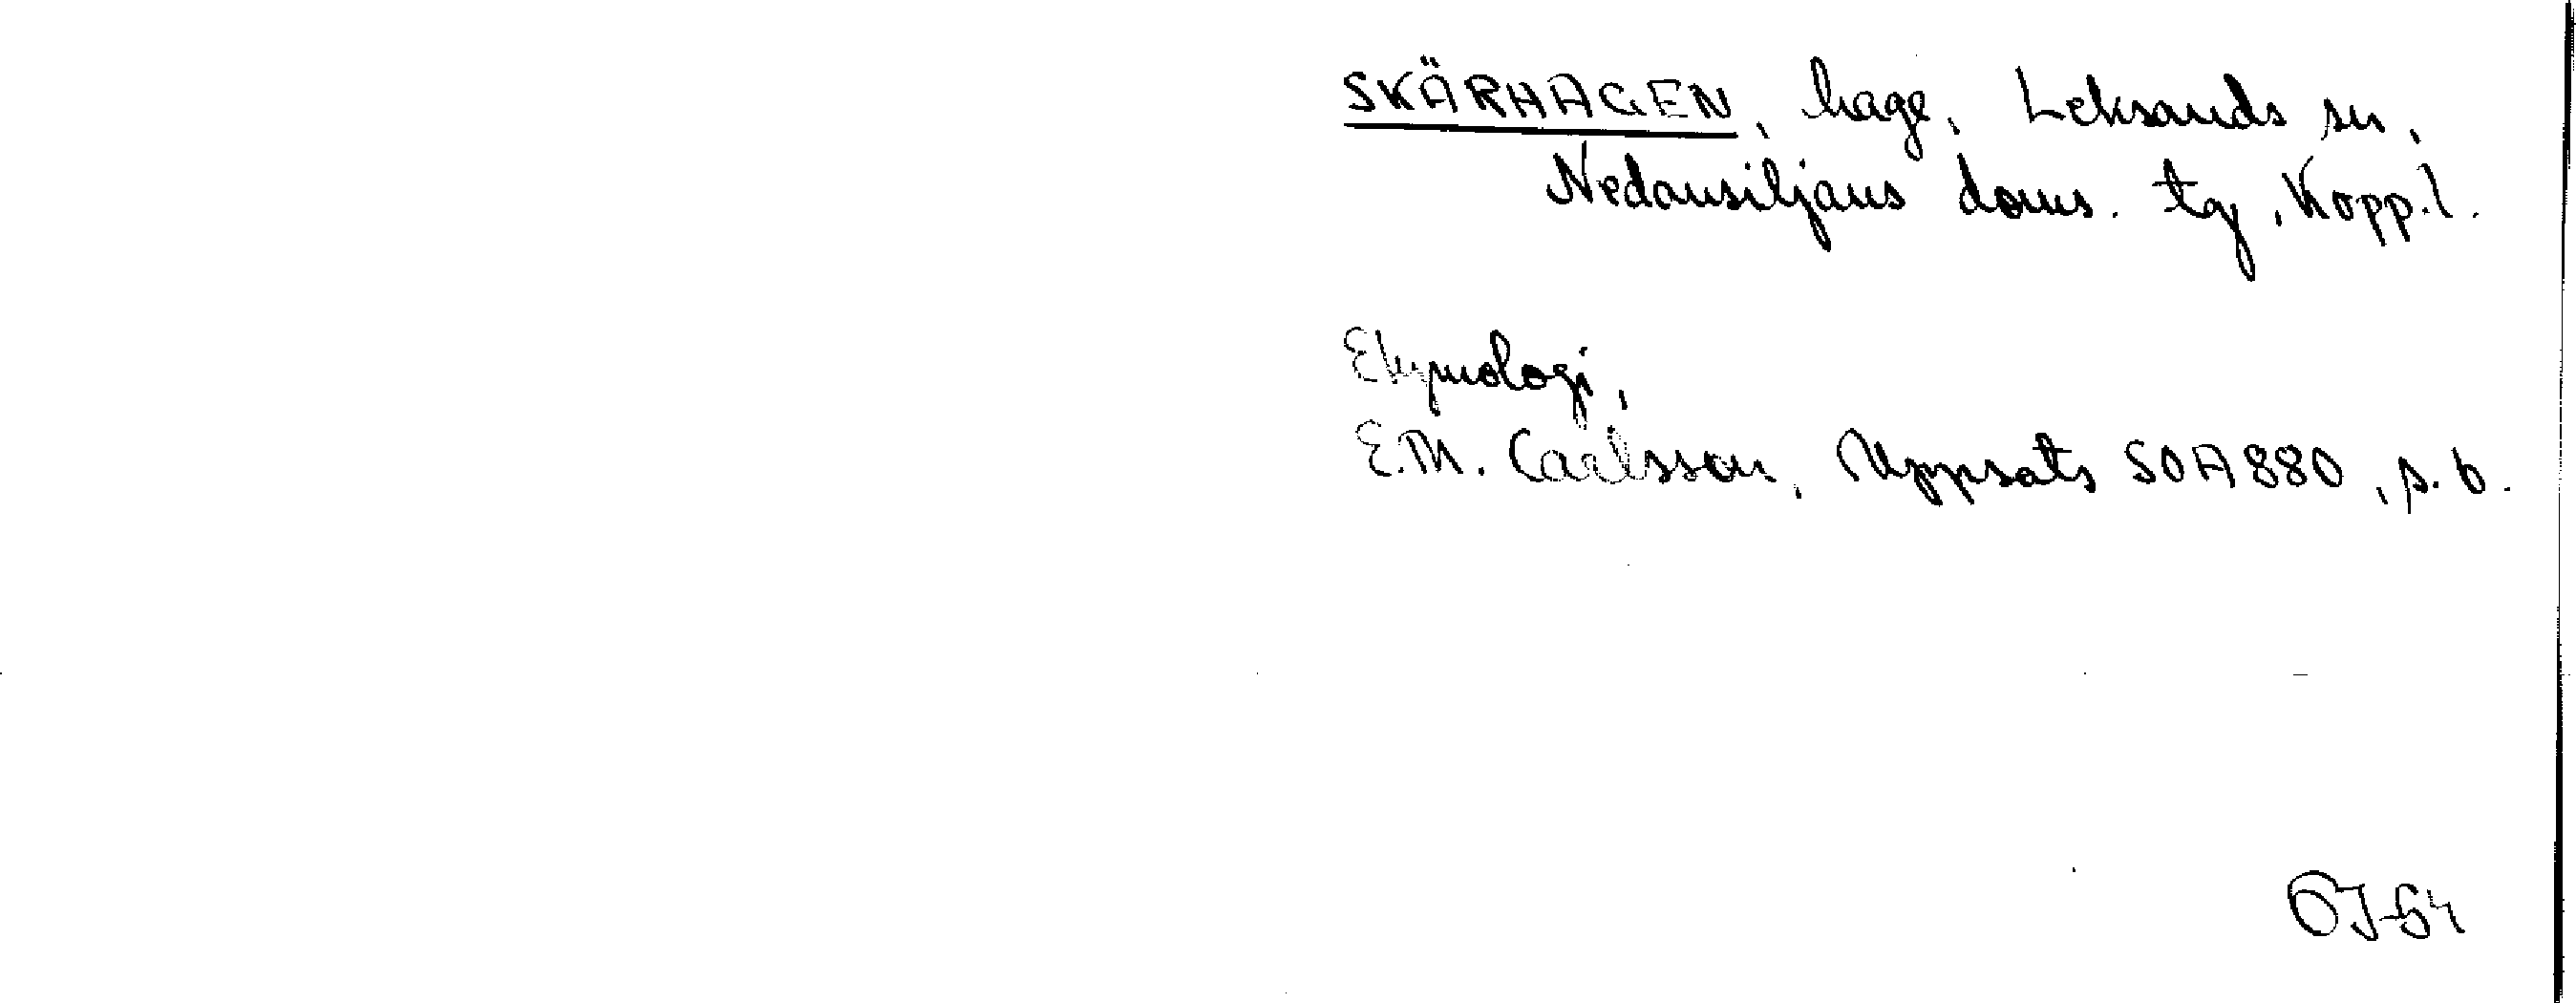 SKÄRHAGEN, hage, Leksands sn,
Nedansiljans doms. tg, Kopp.l.
Etymologi,
E.M. Carlsson, Uppsats SOA880, s. 6.